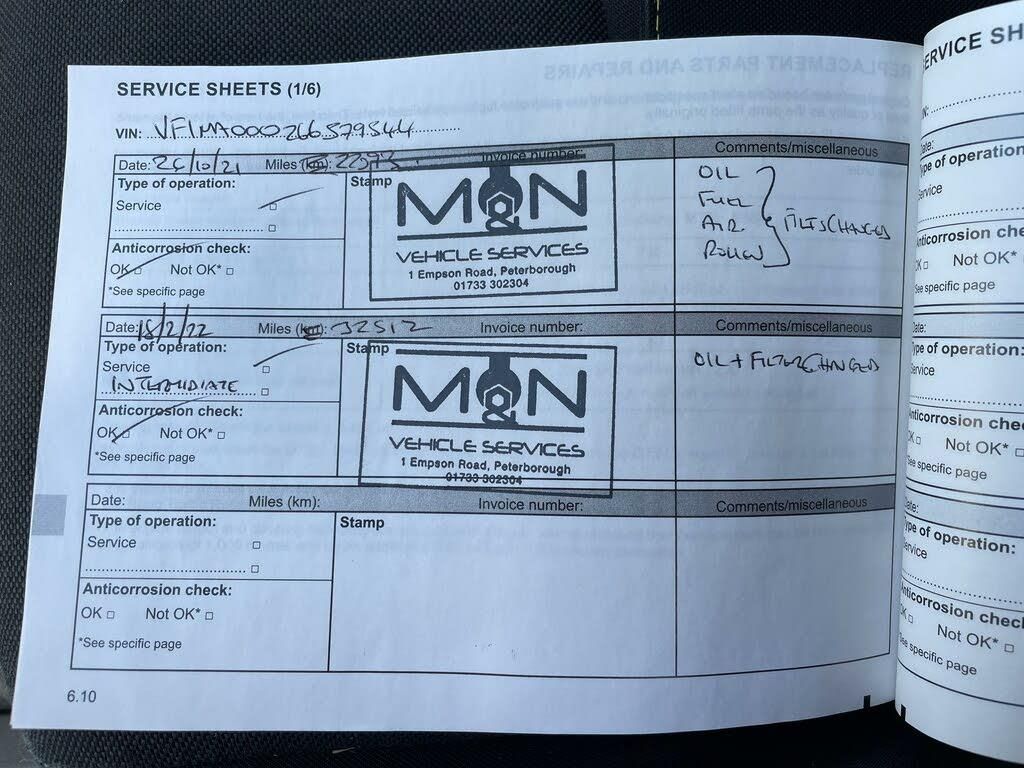 SERVICE SHEETS (1/6)
VIN: VF1MA000266579544
Date: 26/10/21 Miles (km): 22573 Invoice number: Comments/miscellaneous
Type of operation: Stamp
Service
M&N
VEHICLE SERVICES
1 Empson Road, Peterborough
01733 302304
OIL
FUEL
AIR
POLLEN
FILTS CHANGED
Anticorrosion check:
OK Not OK*
*See specific page
Date: 15/2/22 Miles (km): 32512 Invoice number: Comments/miscellaneous
Type of operation: Stamp
Service
INTERMIDIATE
M&N
VEHICLE SERVICES
1 Empson Road, Peterborough
01733 302304
OIL + FILTER CHANGED
Anticorrosion check:
OK Not OK*
*See specific page
Date: Miles (km): Invoice number: Comments/miscellaneous
Type of operation: Stamp
Service
Anticorrosion check:
OK Not OK*
*See specific page
6.10
REPLACEMENT PARTS AND REPAIRS
ERVICE SH
Date:
ype of operation
ervice
nticorrosion che
OK Not OK*
See specific page
Date:
ype of operation:
ervice
nticorrosion chec
OK Not OK*
See specific page
ate:
ype of operation:
ervice
nticorrosion check
OK Not OK*
See specific page